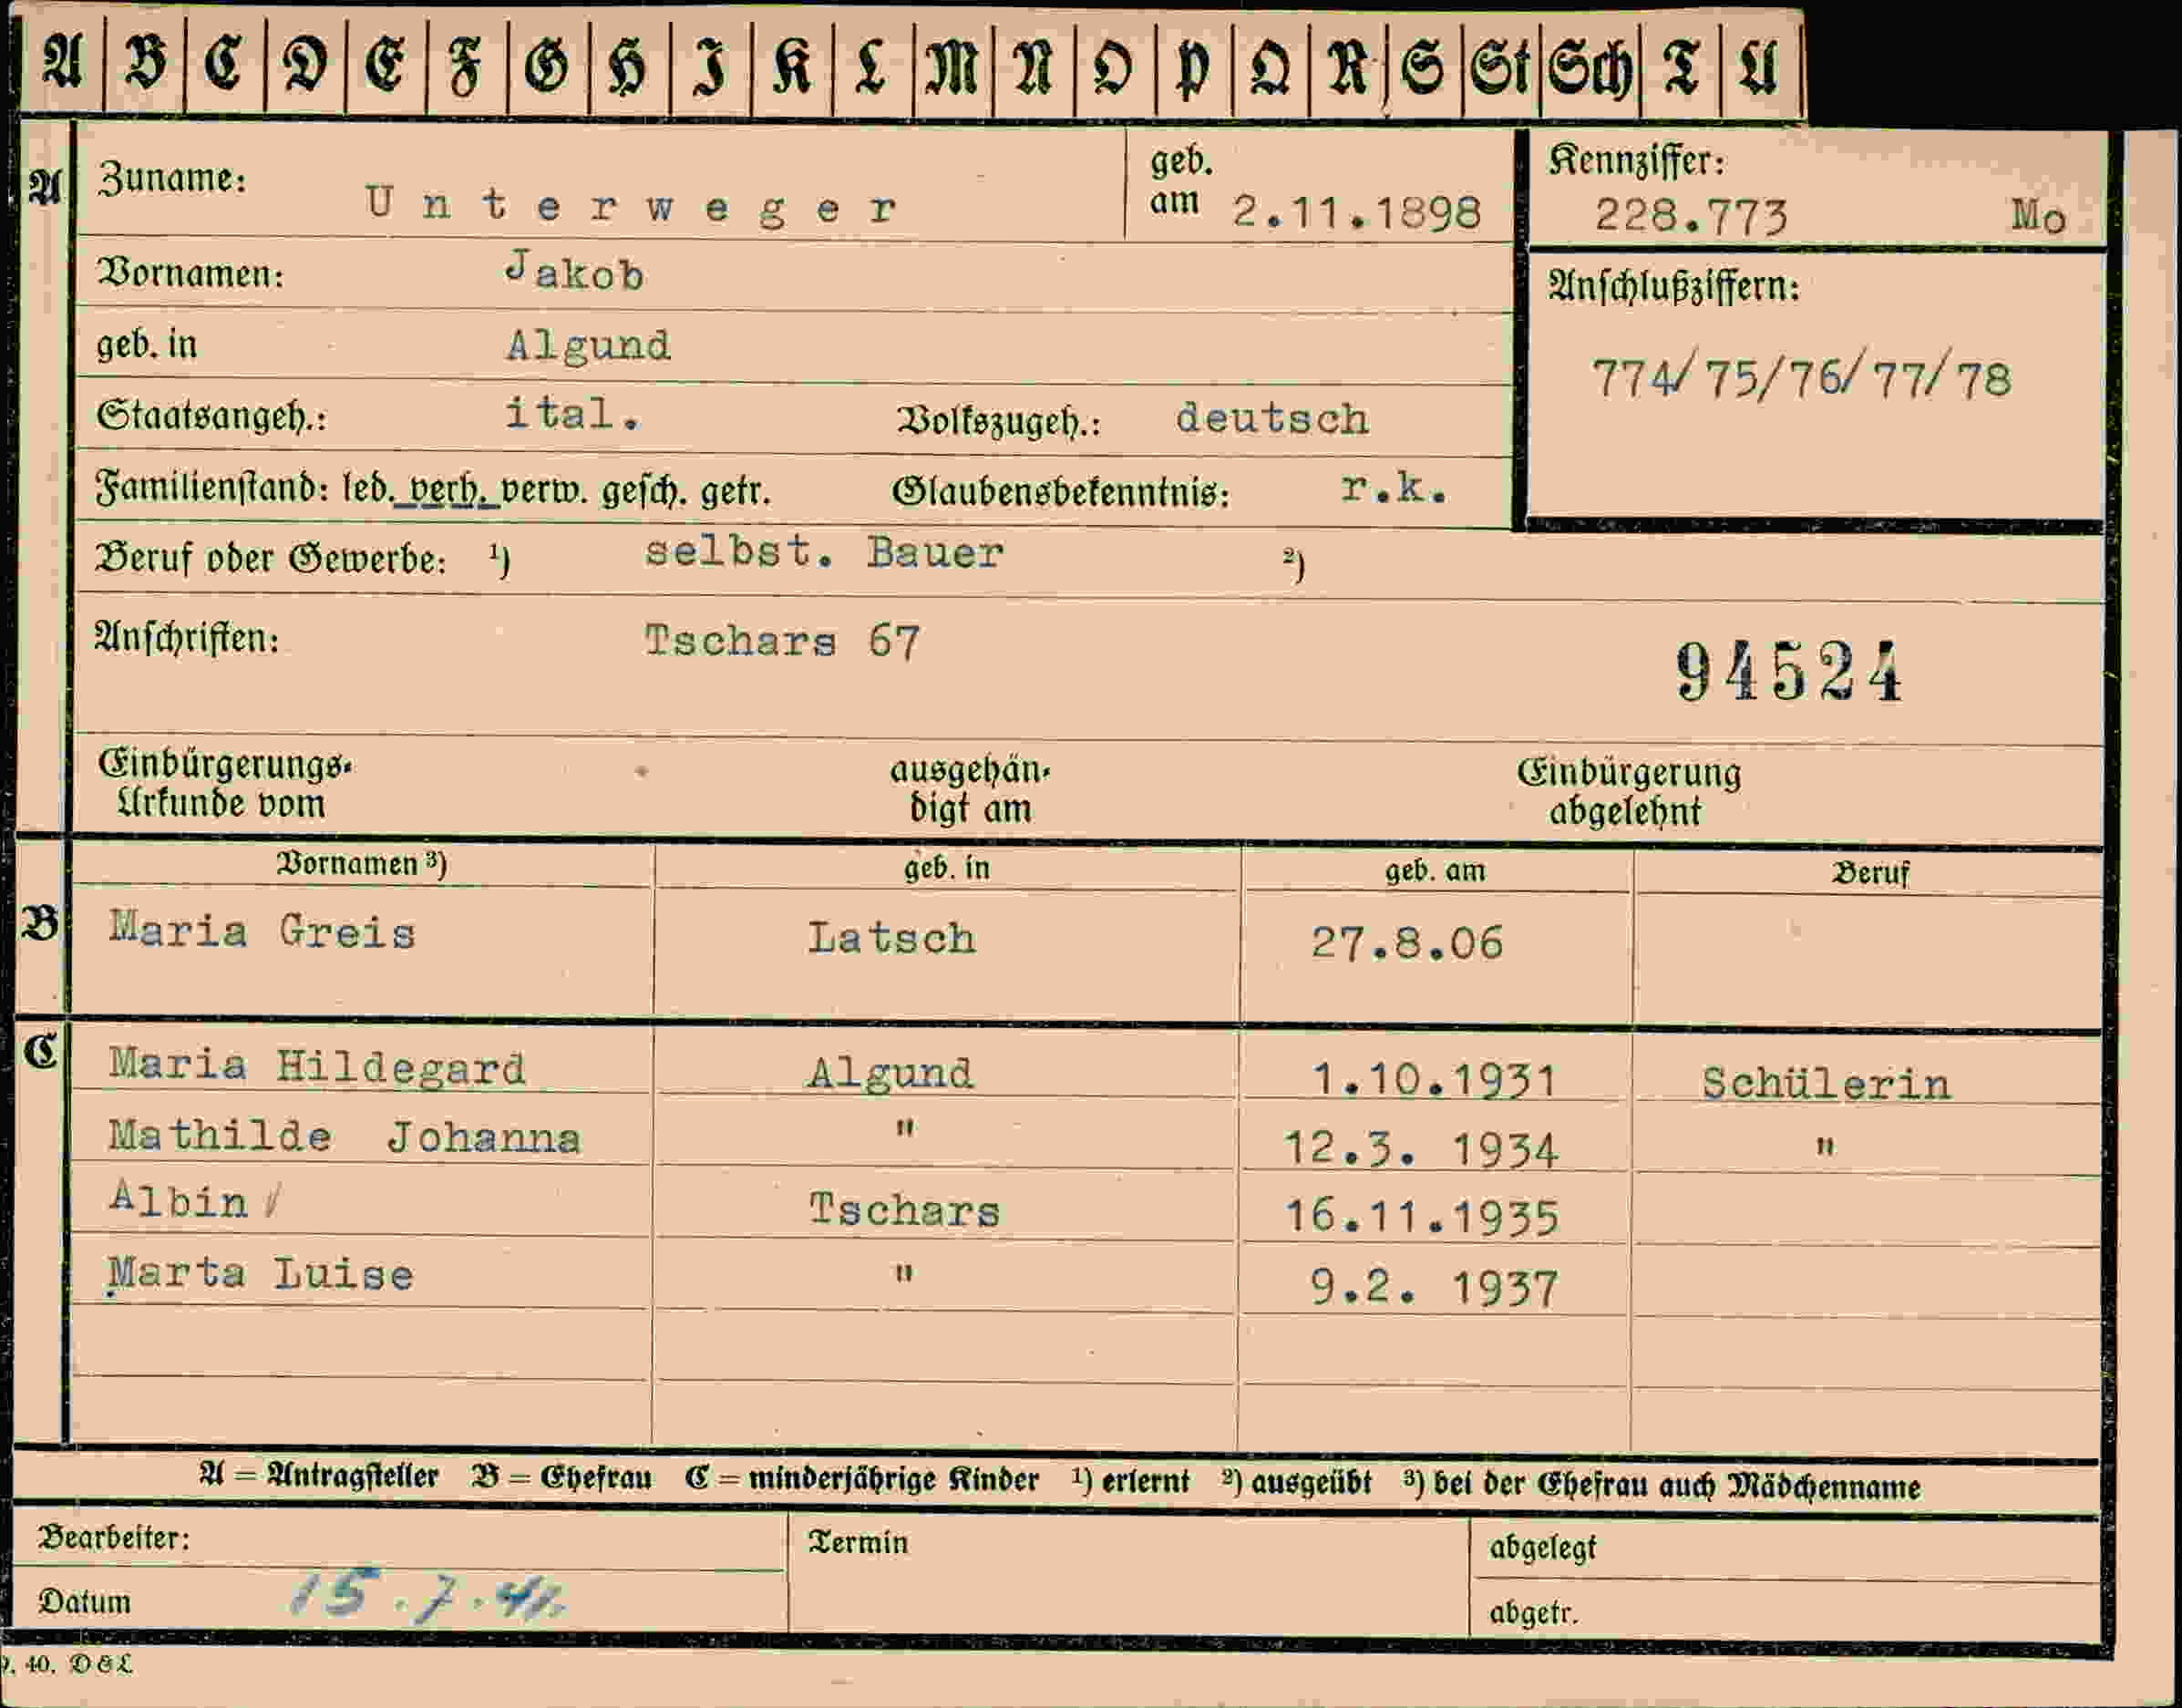 A B C D E F G H I K L M N O P Q R S St Sch T U
A Zuname: Unterweger geb. am 2.11.1898 Kennziffer: 228.773 Mo
Vornamen: Jakob Anschlußziffern:
geb. in Algund 774/75/76/77/78
Staatsangeh.: ital. Volkszugeh.: deutsch
Familienstand: led. verh. verw. gesch. getr. Glaubensbekenntnis: r.k.
Beruf oder Gewerbe: ¹) selbst. Bauer ²)
Anschriften: Tschars 67 94524
Einbürgerungs- ausgehän- Einbürgerung
Urkunde vom digt am abgelehnt
Vornamen ³) geb. in geb. am Beruf
B Maria Greis Latsch 27.8.06
C Maria Hildegard Algund 1.10.1931 Schülerin
Mathilde Johanna " 12.3. 1934 "
Albin / Tschars 16.11.1935
Marta Luise " 9.2. 1937
A = Antragsteller B = Ehefrau C = minderjährige Kinder ¹) erlernt ²) ausgeübt ³) bei der Ehefrau auch Mädchenname
Bearbeiter: Termin abgelegt
Datum 15.7.41. abgetr.
40. D & L